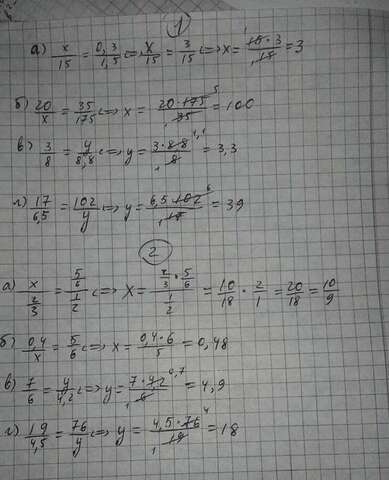 1
а) x/15 = 0,3/1,5 <=> x/15 = 3/15 <=> x = 15·3/15 = 3
б) 20/x = 35/175 <=> x = 20·175/35 = 100
5
1
в) 3/8 = y/8,8 <=> y = 3·8,8/8 = 3,3
1,1
1
г) 17/6,5 = 102/y <=> y = 6,5·102/17 = 39
6
1
2
а) x/(2/3) = (5/6)/(1/2) <=> x = (2/3·5/6)/(1/2) = 10/18 · 2/1 = 20/18 = 10/9
б) 0,4/x = 5/6 <=> x = 0,4·6/5 = 0,48
в) 7/6 = y/4,2 <=> y = 7·4,2/6 = 4,9
0,7
1
г) 19/4,5 = 76/y <=> y = 4,5·76/19 = 18
4
1